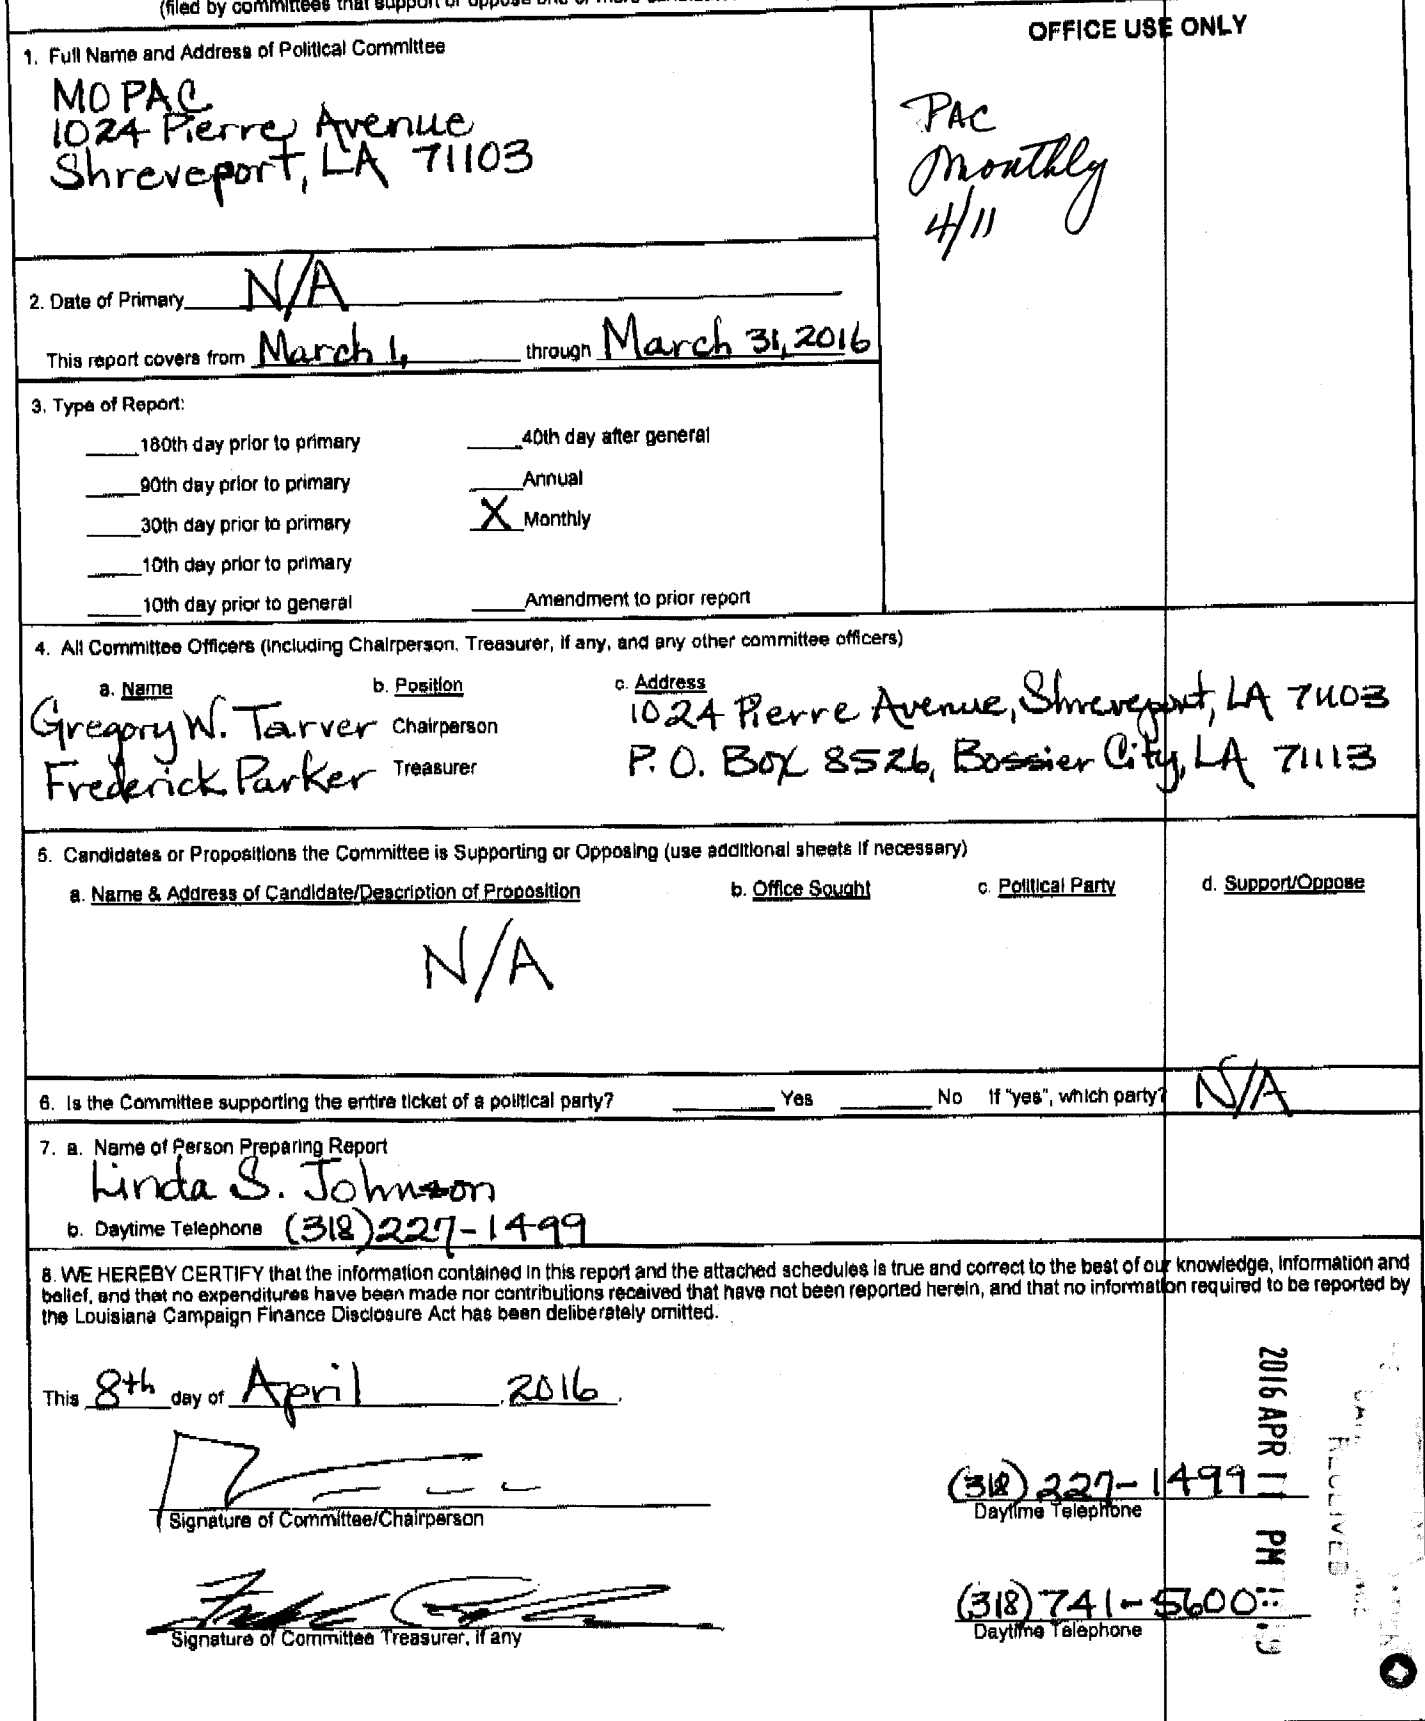 (filed by committees that support or oppose one or more
OFFICE USE ONLY
1. Full Name and Address of Political Committee
MOPAC
1024 Pierre Avenue
Shreveport, LA 71103
PAC
Monthly
4/11
2. Date of Primary N/A
This report covers from March 1, through March 31, 2016
3. Type of Report:
180th day prior to primary
40th day after general
90th day prior to primary
Annual
30th day prior to primary
X Monthly
10th day prior to primary
10th day prior to general
Amendment to prior report
4. All Committee Officers (including Chairperson, Treasurer, if any, and any other committee officers)
a. Name b. Position c. Address
Gregory W. Tarver Chairperson 1024 Pierre Avenue, Shreveport, LA 71103
Frederick Parker Treasurer P.O. Box 8526, Bossier City, LA 71113
5. Candidates or Propositions the Committee is Supporting or Opposing (use additional sheets if necessary)
a. Name & Address of Candidate/Description of Proposition b. Office Sought c. Political Party d. Support/Oppose
N/A
6. Is the Committee supporting the entire ticket of a political party? Yes No If "yes", which party? N/A
7. a. Name of Person Preparing Report
Linda S. Johnson
b. Daytime Telephone (318)227-1499
8. WE HEREBY CERTIFY that the information contained in this report and the attached schedules is true and correct to the best of our knowledge, information and
belief, and that no expenditures have been made nor contributions received that have not been reported herein, and that no information required to be reported by
the Louisiana Campaign Finance Disclosure Act has been deliberately omitted.
This 8th day of April, 2016.
(318) 227-1499
Signature of Committee/Chairperson
Daytime Telephone
(318) 741-5600
Signature of Committee Treasurer, if any
Daytime Telephone
2016 APR 11 PM
RECEIVED